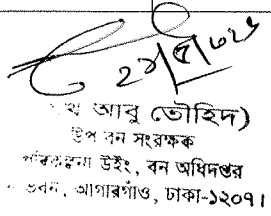 ২৯/৫/২০২৬
আবু তৌহিদ)
উপ বন সংরক্ষক
পরিকল্পনা উইং, বন অধিদপ্তর
ভবন, আগারগাঁও, ঢাকা-১২০৭।